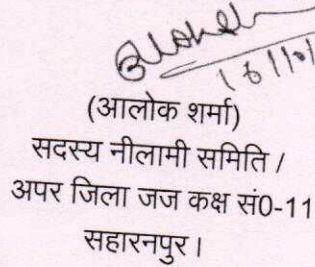 (आलोक शर्मा)
सदस्य नीलामी समिति /
अपर जिला जज कक्ष सं0-11
सहारनपुर।